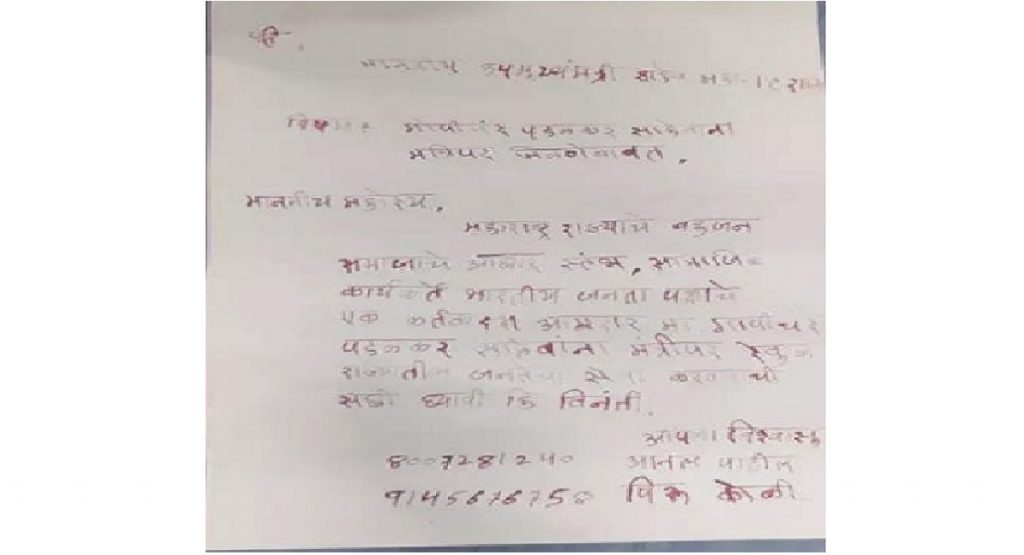 प्रति,
माननीय उपमुख्यमंत्री साहेब महाराष्ट्र राज्य
विषय: गोपीचंद पडळकर साहेबांना
मंत्रिपद मिळणेबाबत.
माननीय महोदय,
महाराष्ट्र राज्याचे बहुजन
समाजाचे आधार स्तंभ, सामाजिक
कार्यकर्ते भारतीय जनता पक्षाचे
एक कर्तव्यदक्ष आमदार मा गोपीचंद
पडळकर साहेबांना मंत्रीपद देवुन
राज्यातील जनतेची सेवा करण्याची
संधी द्यावी हि विनंती.
आपला विश्वासू
8007281240 पाटील
9145676758 कोळी